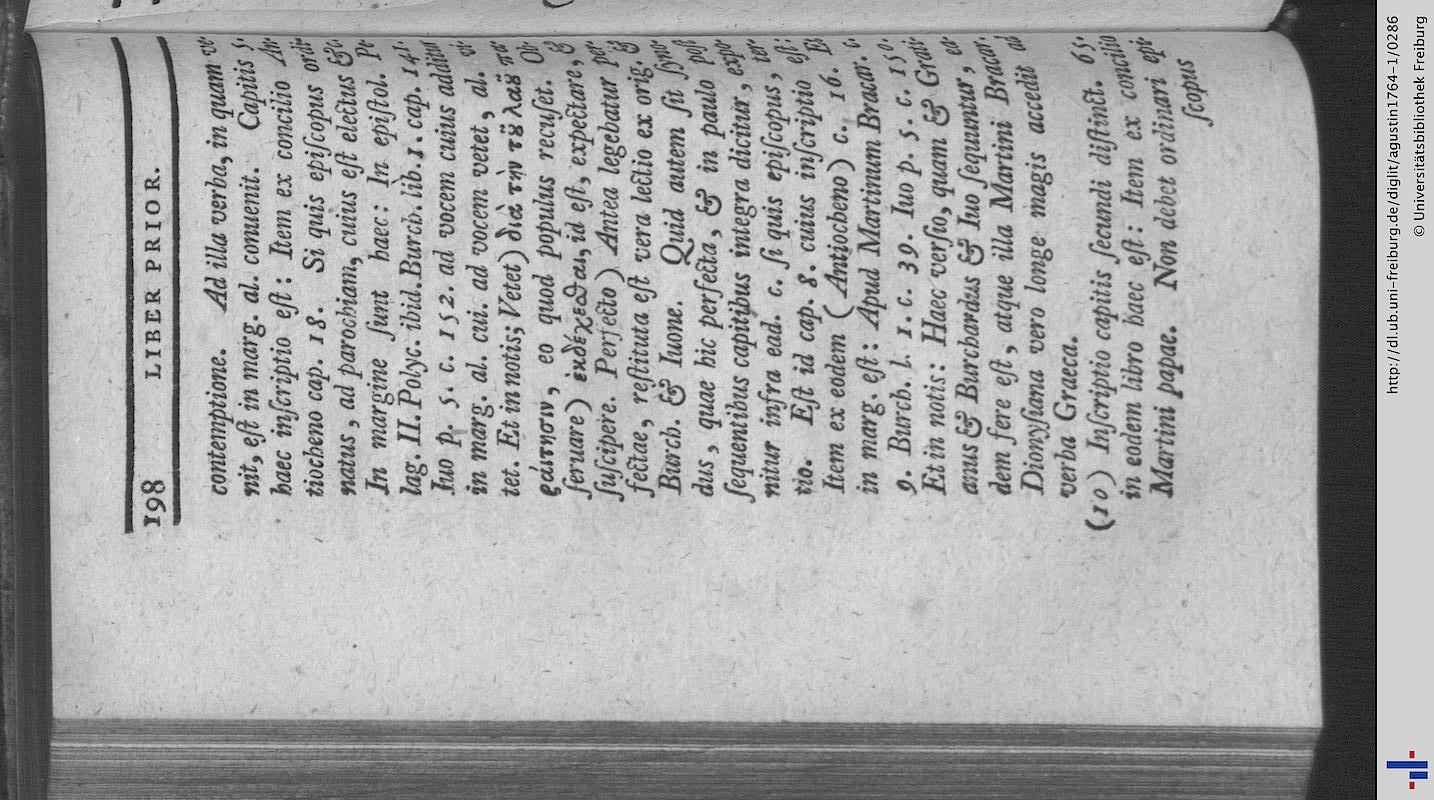 198 LIBER PRIOR.
contemptione. Ad illa verba, in quam ve-
nit, eſt in marg. al. conuenit. Capitis 5.
haec inſcriptio eſt: Item ex concilio An-
tiocheno cap. 18. Si quis epiſcopus ordi-
natus, ad parochiam, cuius eſt electus &c.
In margine ſunt haec: In epiſtol. Pe-
lag. II. Polyc. ibid. Burch. lib. 1. cap. 141.
Iuo p. 5. c. 152. ad vocem cuius additur
in marg. al. cui. ad vocem vetet, al. vi-
tet. Et in notis; Vetet) διὰ τὴν τοῦ λαοῦ πα-
ραίτησιν, eo quod populus recuſet. Ob-
ſeruare) ἐκδέχεσθαι, id eſt, expectare, &
ſuſcipere. Perfecto) Antea legebatur per-
fectae, reſtituta eſt vera lectio ex orig. &
Burch. & Iuone. Quid autem ſit ſyno-
dus, quae hic perfecta, & in paulo poſt
ſequentibus capitibus integra dicitur, expo-
nitur infra ead. c. ſi quis epiſcopus, ter-
tio. Eſt id cap. 8. cuius inſcriptio eſt:
Item ex eodem (Antiocheno) c. 16. Et
in marg. eſt: Apud Martinum Bracar. c.
9. Burch. l. 1. c. 39. Iuo p. 5. c. 150.
Et in notis: Haec verſio, quam & Grati-
anus & Burchardus & Iuo ſequuntur, ea-
dem fere eſt, atque illa Martini Bracar.
Dionyſiana vero longe magis accedit ad
verba Graeca.
(10) Inſcriptio capitis ſecundi diſtinct. 65.
in eodem libro haec eſt: Item ex concilio
Martini papae. Non debet ordinari epi-
ſcopus
http://dl.ub.uni-freiburg.de/diglit/agustin1764-1/0286
© Universitätsbibliothek Freiburg